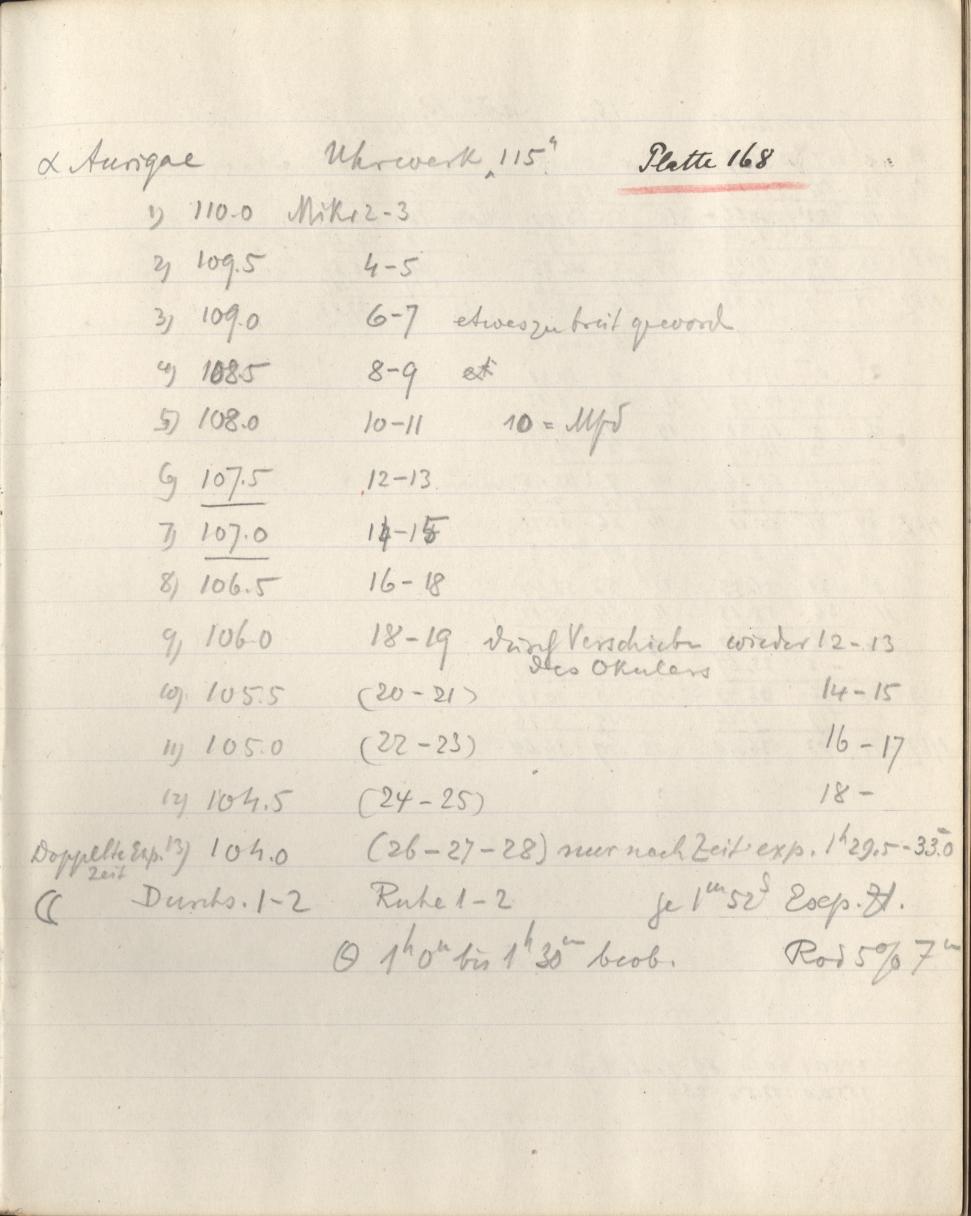 α Aurigae Uhrwerk 115 Platte 168
1) 110.0 Mikr 2-3
2) 109.5 4-5
3) 109.0 6-7 etwas zu breit geword
4) 108.5 8-9
5) 108.0 10-11 10 =
6) 107.5 12-13
7) 107.0 14-15
8) 106.5 16-18
9) 106.0 18-19 durch Verschieben wieder 12-13
des Okulars
10) 105.5 (20-21) 14-15
11) 105.0 (22-23) 16-17
12) 104.5 (24-25) 18-
Doppelte Exp. 13) 104.0 (26-27-28) nur noch Zeit exp. 1h 29.5-33.0
Zeit
☾ Durchs. 1-2 Ruhe 1-2 je 1m 52s Exp. Zt.
⊙ 1h 0m bis 1h 30m beob. Rod 5% 7m